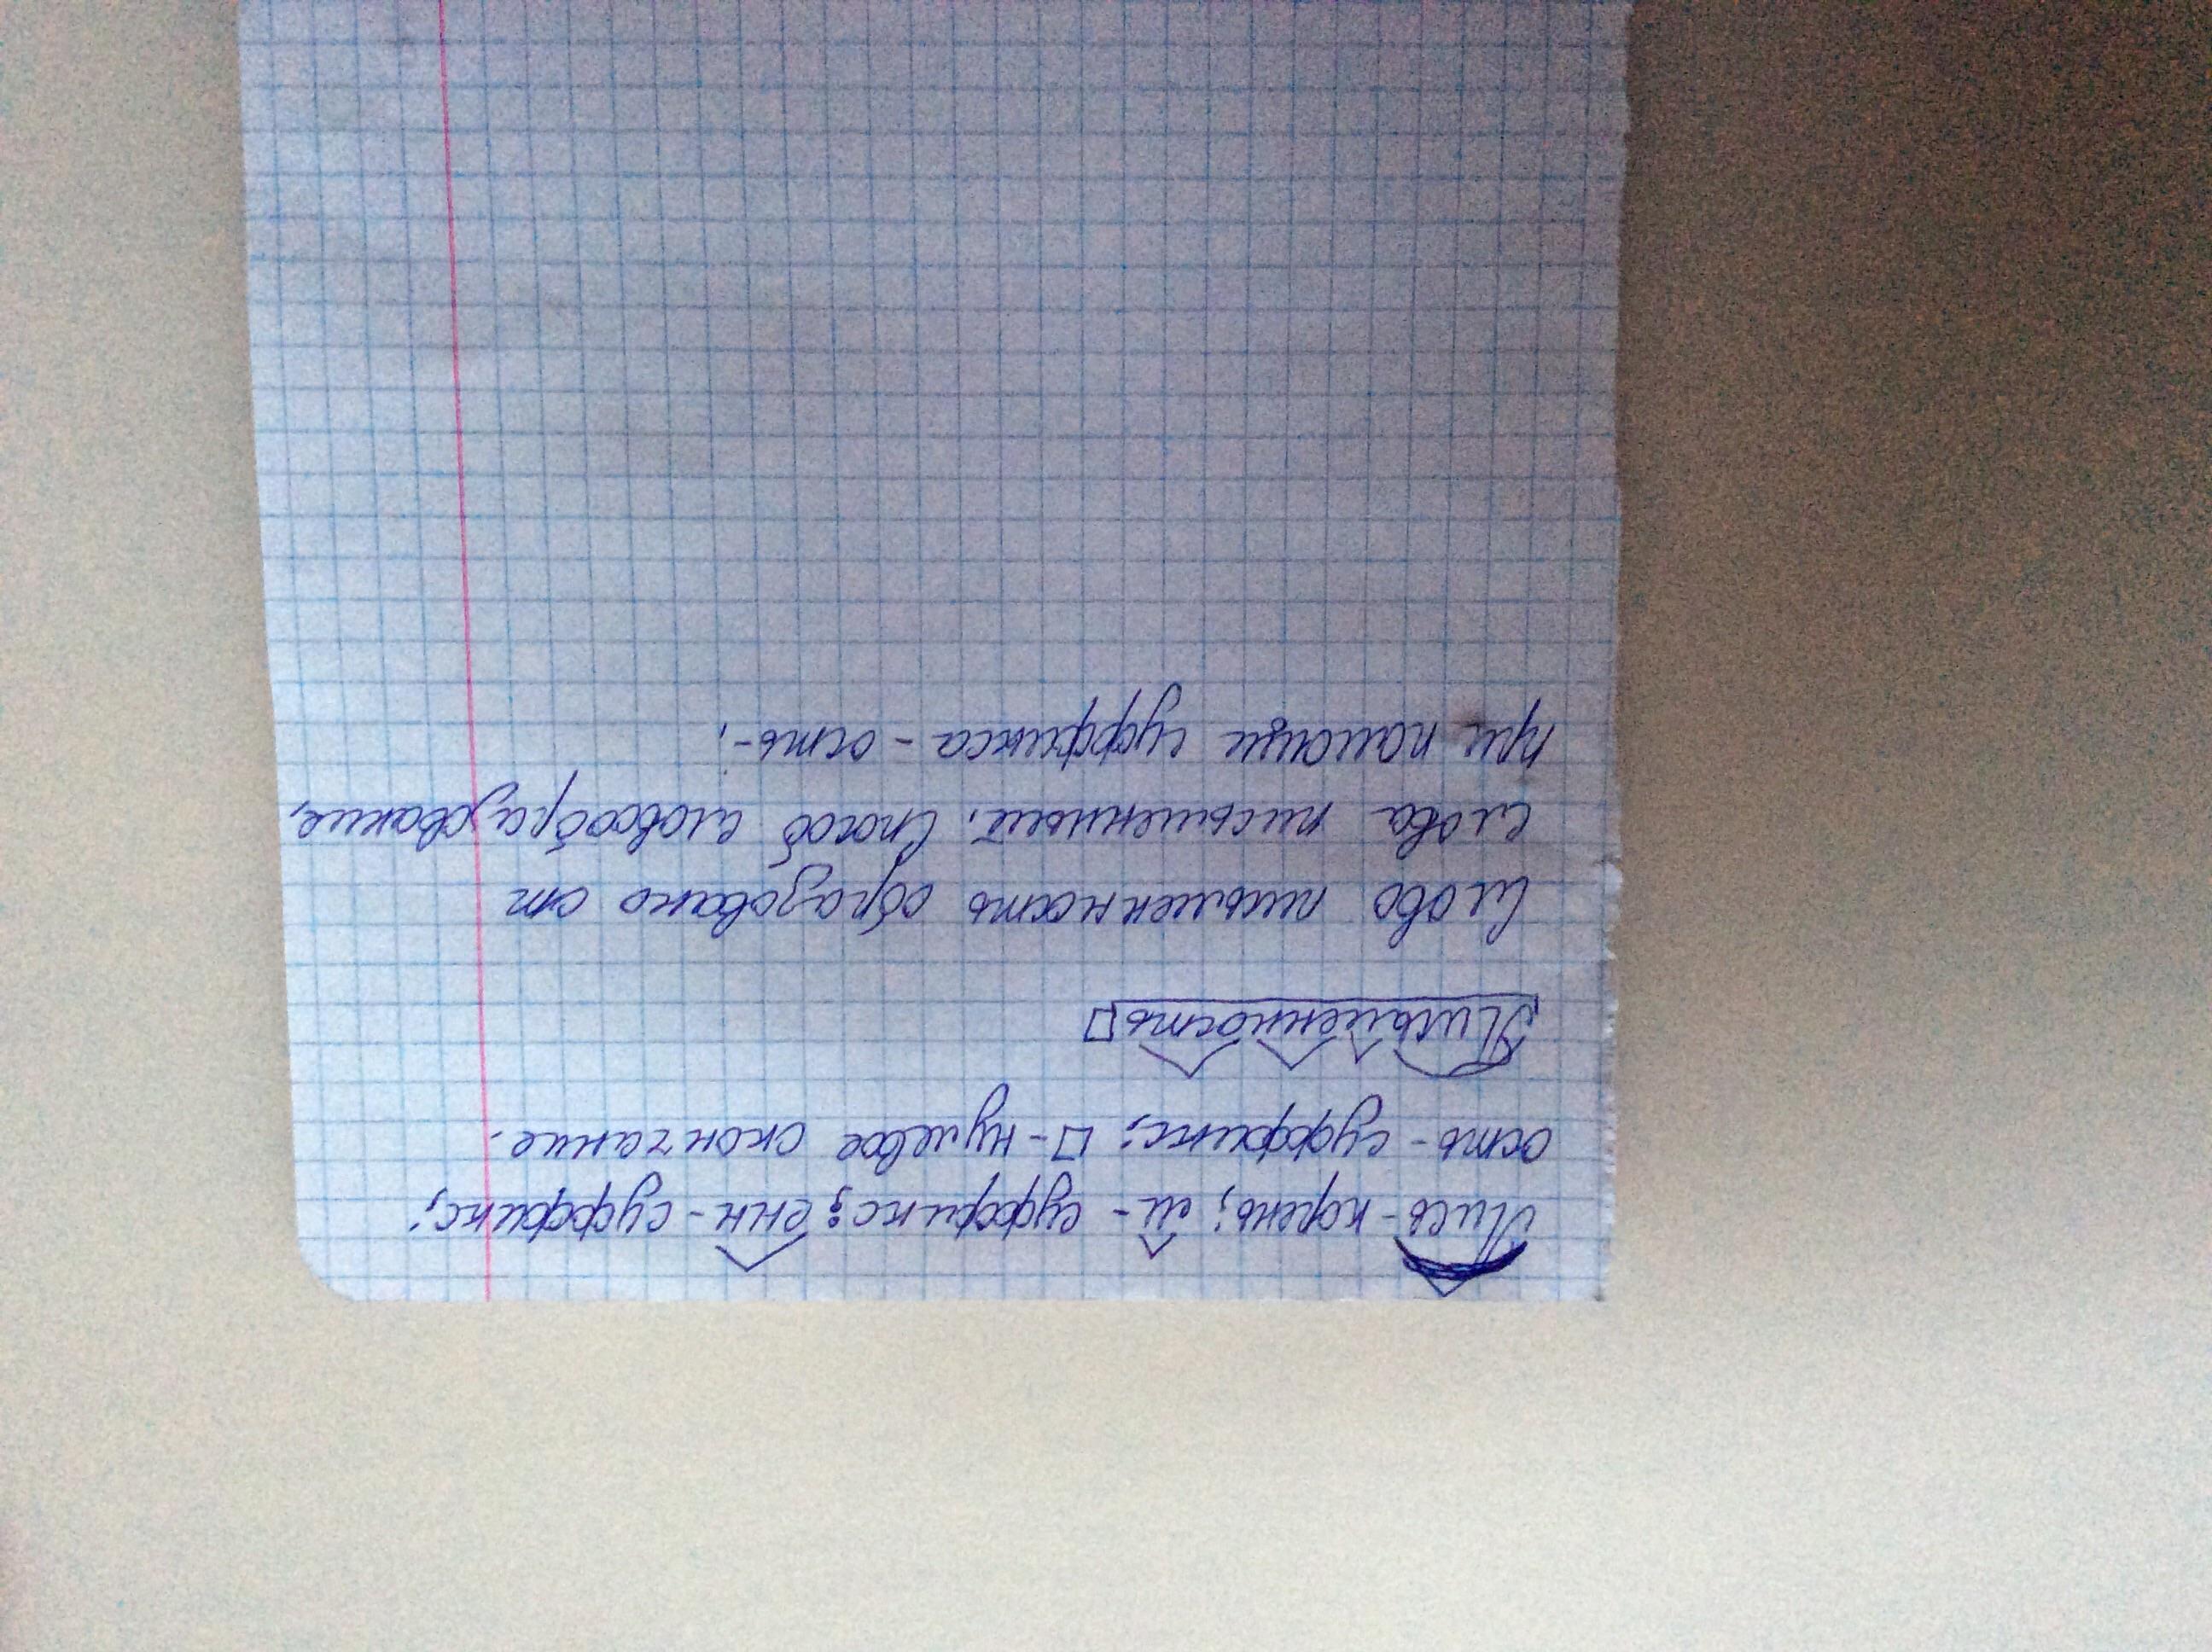 Пись-корень; м - суффикс; енн - суффикс;
ость - суффикс; □ - нулевое окончание.
Письменность□
Слово письменность образовано от
слова письменный. Способ словообразование,
при помощи суффикса - ость-;